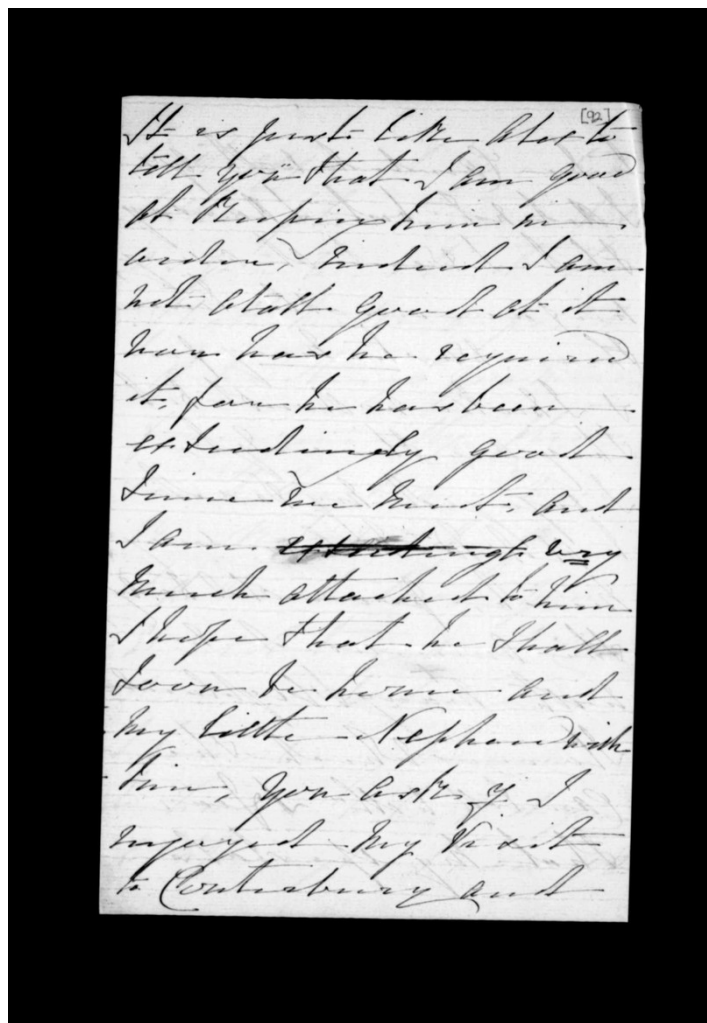 [92]
It is just like Alex to
tell you that I am good
at keeping him in
order, indeed I am
not atall good at it
nor has he required
it, for he has been
exceedingly good
since we met, and
I am exceedingly very
much attached to him
I hope that he shall
soon be home and
my little Nephew with
him, you ask if I
enjoyed my visit
to Canterbury and